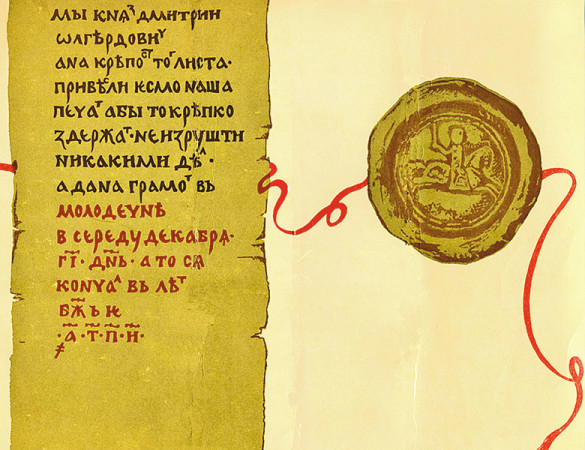 мы кнѧⷥ дмитрии
ѡлгѣрдовиⷱ
ана крѣпоⷭⷮ тоⷢ листа·
привѣⷭли есмо наша
печаⷮ абы то крѣпко
здержаⷮ·неизрушти
никакими дѣⷧ·
а дана грамоⷮ въ
молодечнѣ
в середу декабрѧ·
г҃і· дн҃ь· а то сѧ
кончаⷧ въ лѣⷮ
бж҃ъ
·҂а҃·т҃·п҃·и҃·